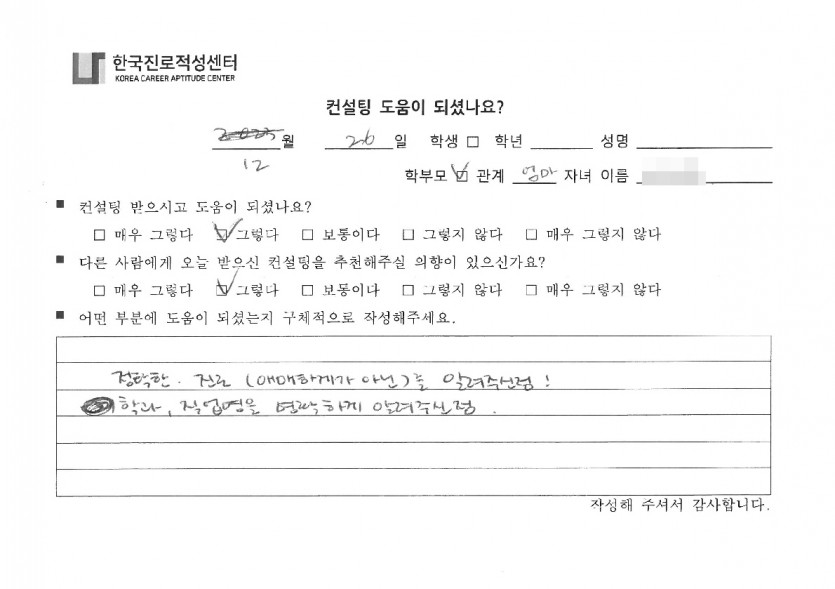 한국진로적성센터
KOREA CAREER APTITUDE CENTER
컨설팅 도움이 되셨나요?
월 26 일 학생 □ 학년 성명
12
학부모 ☑ 관계 엄마 자녀 이름
■ 컨설팅 받으시고 도움이 되셨나요?
□ 매우 그렇다 ☑ 그렇다 □ 보통이다 □ 그렇지 않다 □ 매우 그렇지 않다
■ 다른 사람에게 오늘 받으신 컨설팅을 추천해주실 의향이 있으신가요?
□ 매우 그렇다 ☑ 그렇다 □ 보통이다 □ 그렇지 않다 □ 매우 그렇지 않다
■ 어떤 부분에 도움이 되셨는지 구체적으로 작성해주세요.
정확한. 진로 (애매하게가 아닌)를 알려주신점!
학과, 직업명을 명확하게 알려주신점.
작성해 주셔서 감사합니다.